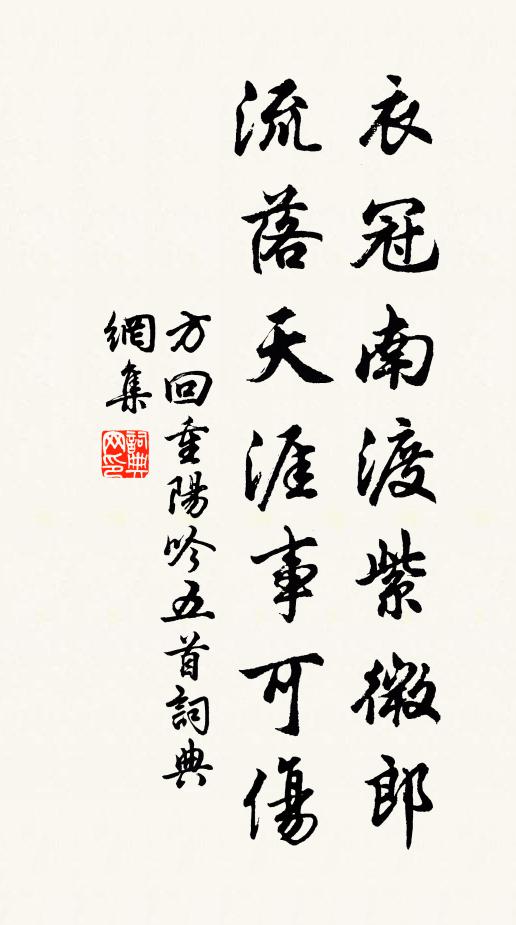 衣冠南渡紫微郎
流落天涯事可傷
方回重陽吟五首詞典
網集
詞典
网印